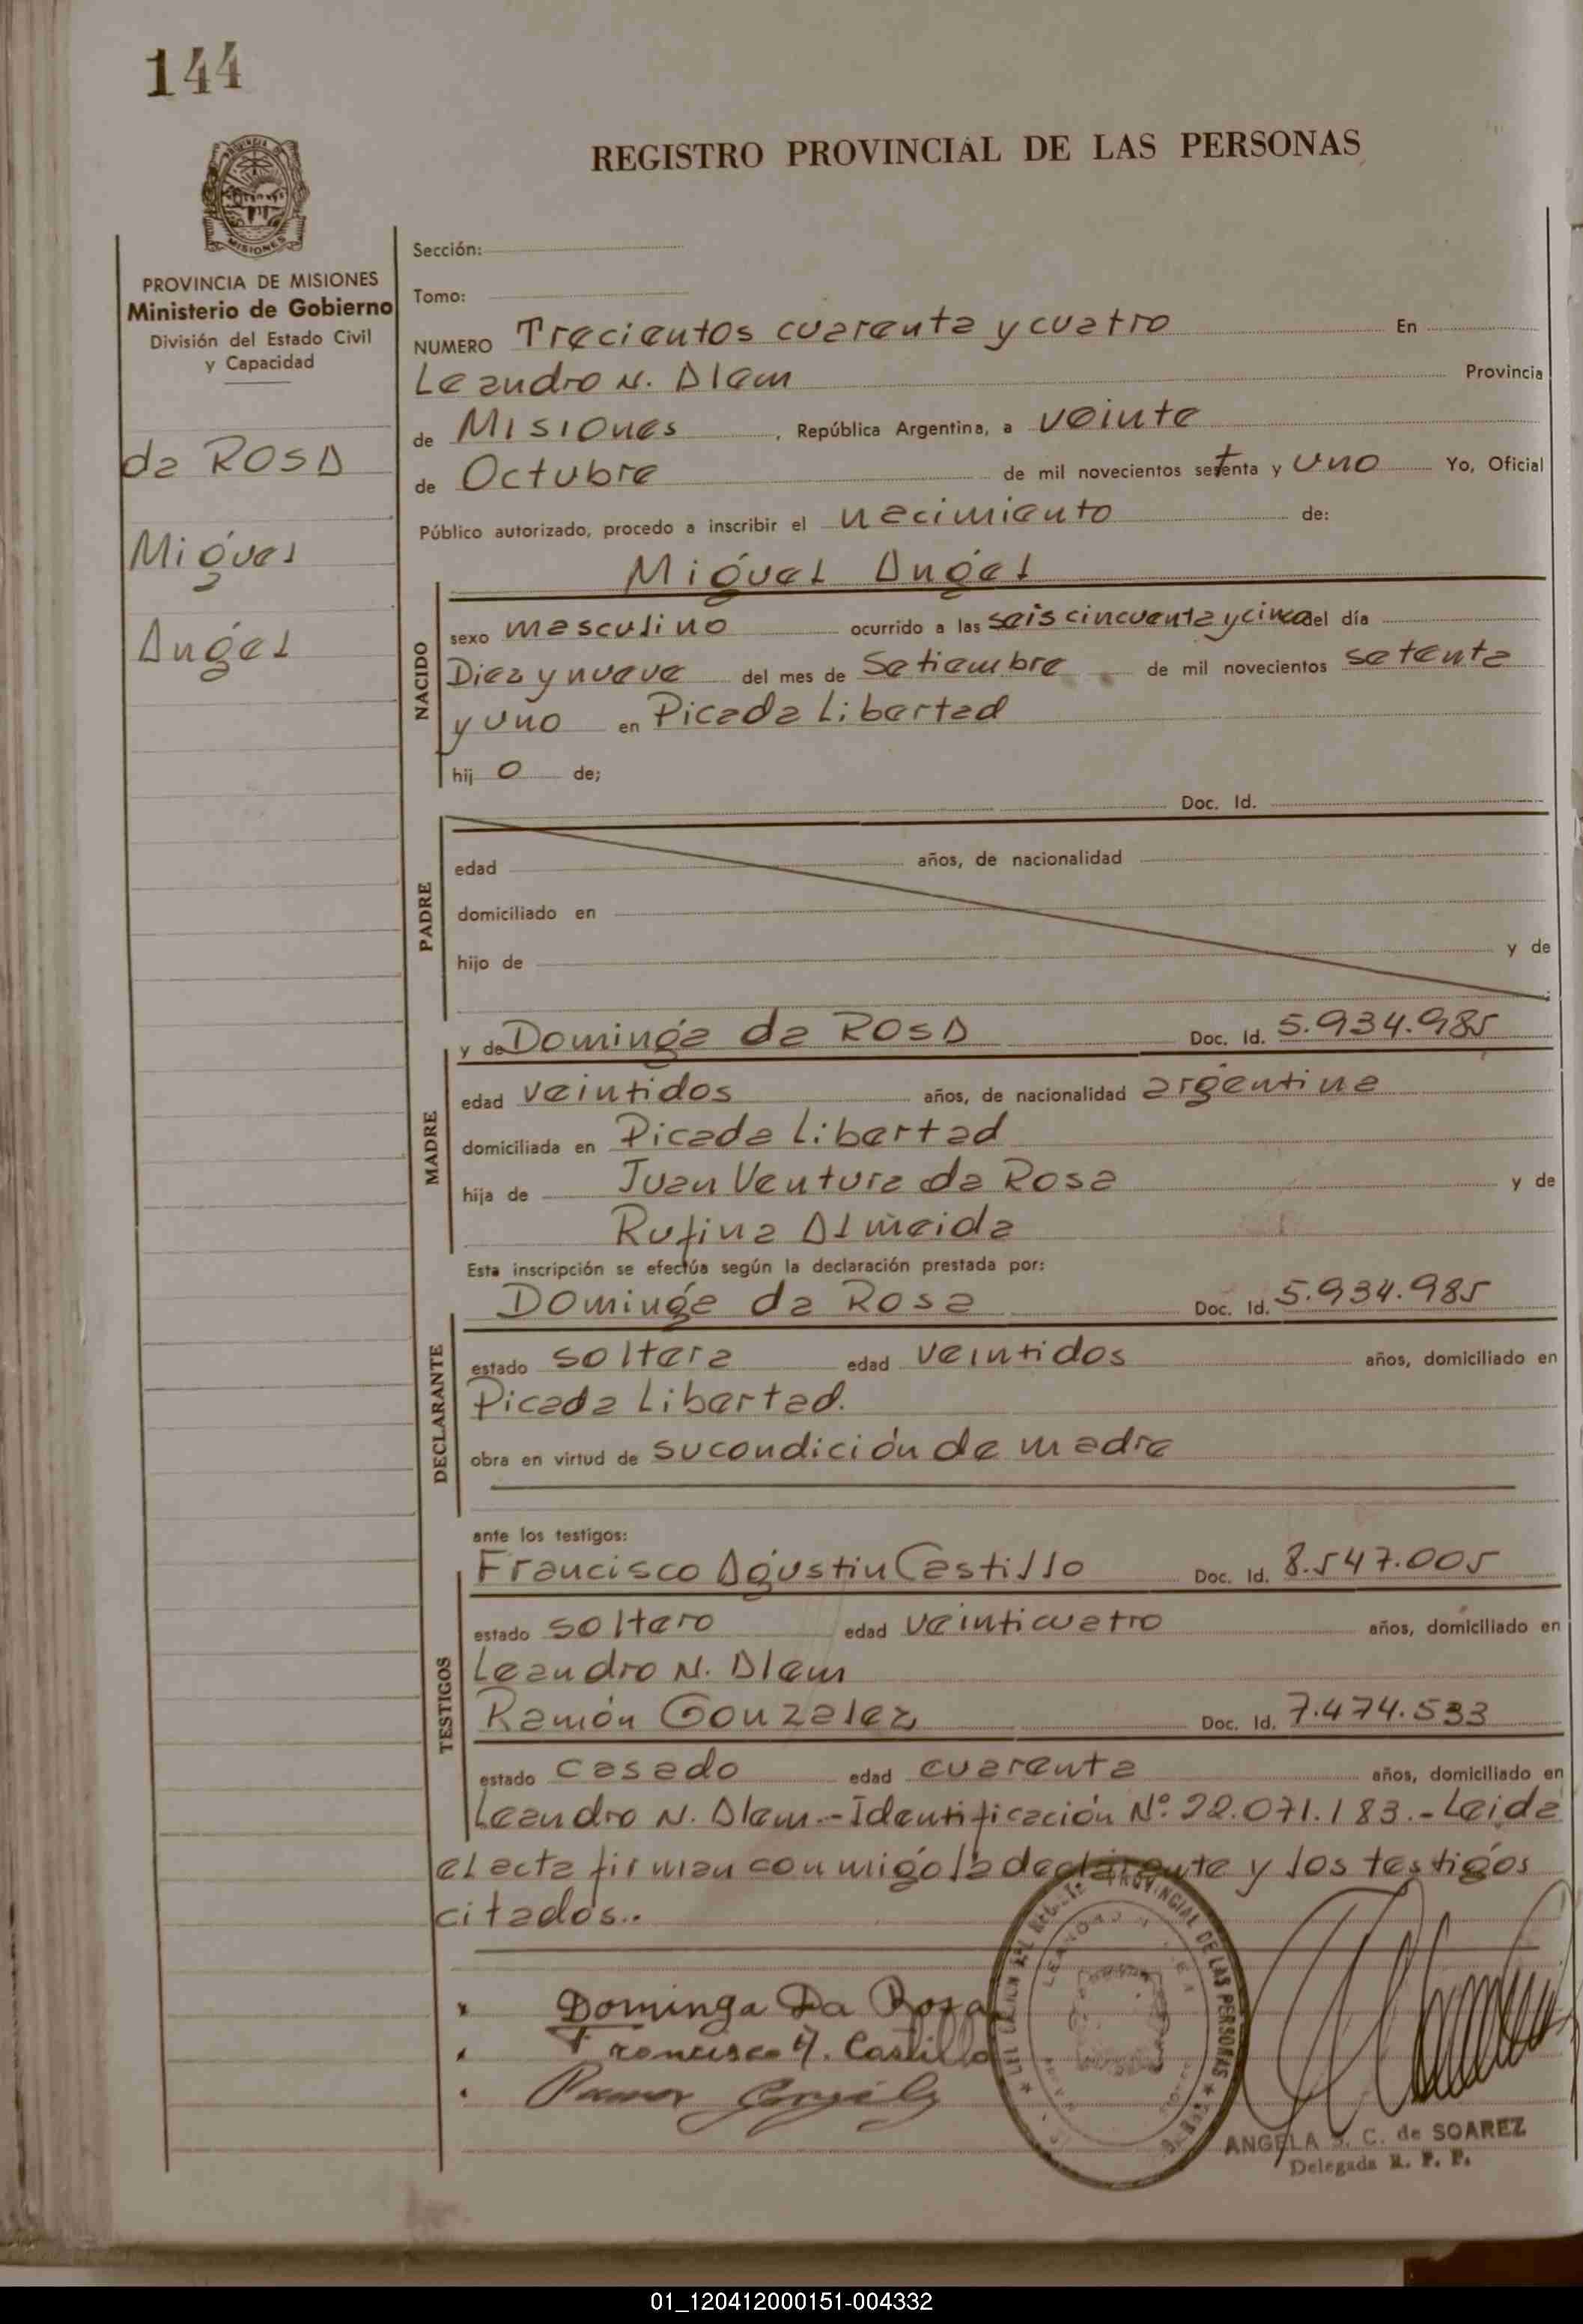 144
REGISTRO PROVINCIAL DE LAS PERSONAS
PROVINCIA DE MISIONES
Ministerio de Gobierno
División del Estado Civil
y Capacidad
da ROSA
Miguel
Angel
Sección:
Tomo:
NUMERO Trecientos cuarenta y cuatro En
Leandro N. Alem Provincia
de Misiones, República Argentina, a veinte
de Octubre de mil novecientos setenta y uno Yo, Oficial
Público autorizado, procedo a inscribir el nacimiento de:
Miguel Angel
NACIDO
sexo masculino ocurrido a las seis cincuenta y cinco del día
Diez y nueve del mes de Setiembre de mil novecientos setenta
y uno en Picada Libertad
hij o de;
PADRE
Doc. Id.
edad años, de nacionalidad
domiciliado en
hijo de y de
MADRE
y de Dominga da ROSA Doc. Id. 5.934.985
edad veintidos años, de nacionalidad argentina
domiciliada en Picada Libertad
hija de Juan Ventura da Rosa y de
Rufina Almeida
Esta inscripción se efectúa según la declaración prestada por:
DECLARANTE
Dominga da Rosa Doc. Id. 5.934.985
estado soltera edad veintidos años, domiciliado en
Picada Libertad.
obra en virtud de su condición de madre
ante los testigos:
TESTIGOS
Francisco Agustin Castillo Doc. Id. 8.547.005
estado soltero edad veinticuatro años, domiciliado en
Leandro N. Alem
Ramón Gonzalez Doc. Id. 7.474.533
estado casado edad cuarenta años, domiciliado en
Leandro N. Alem.- Identificación Nº 22.071.183.- Leida
el acta firman conmigo la declarante y los testigos
citados..
Dominga Da Rosa
Francisco A. Castillo
Ramon Gonzalez
PROVINCIAL DE LAS PERSONAS
ANGELA S. C. de SOAREZ
Delegada R. P. P.
01_120412000151-004332